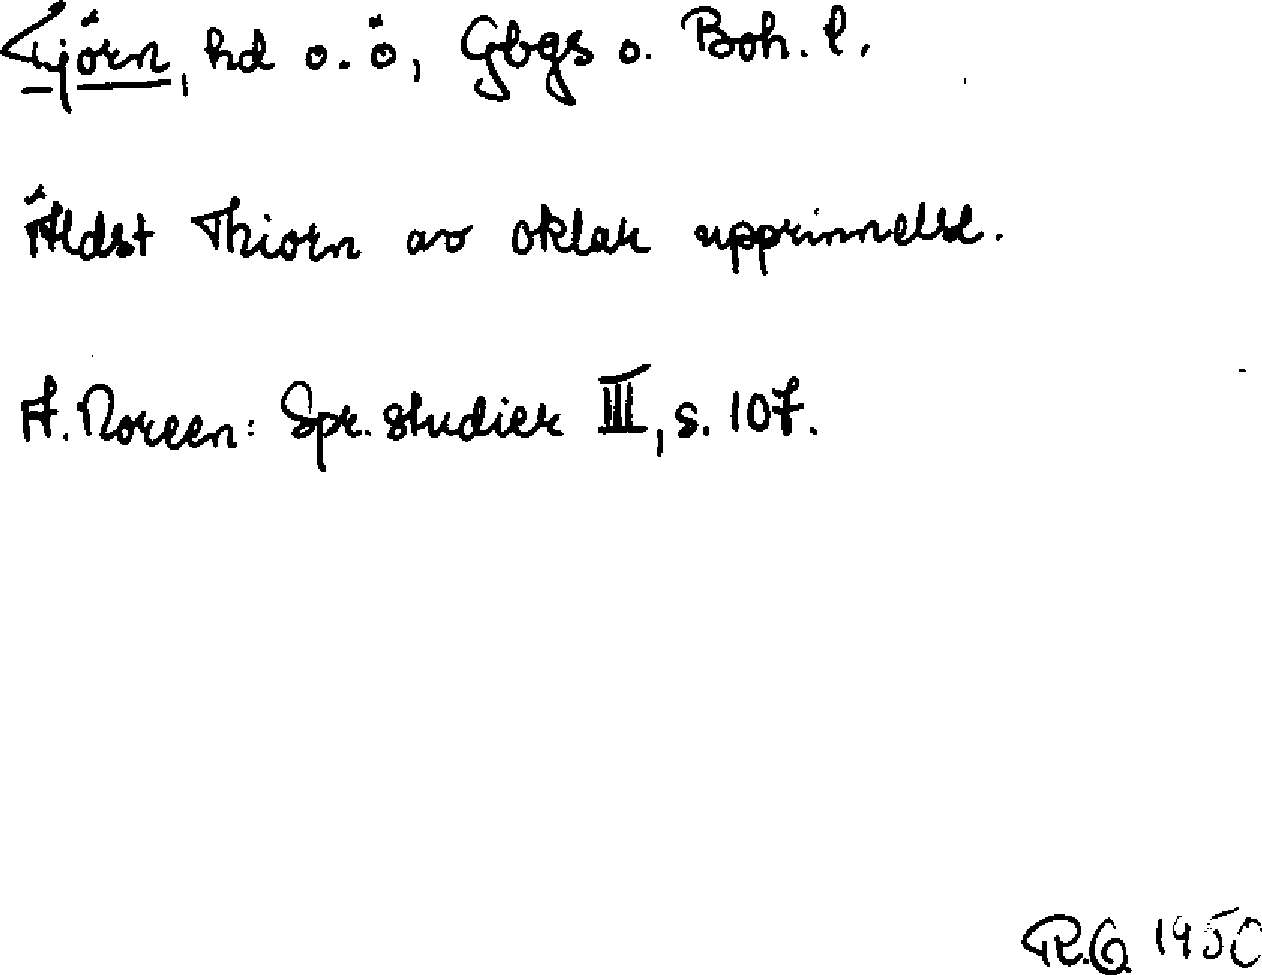 Tjörn, hd o. ö, Gbgs o. Boh. l.
Äldst Thiorn av oklar upprinnelse.
A. Noreen: Spr. studier III, s. 107.
R.G. 1950